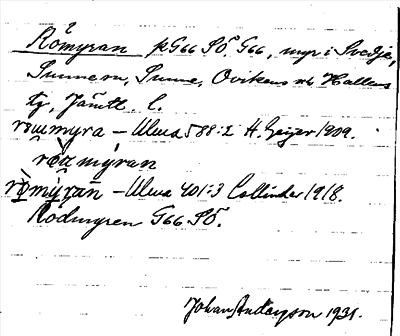 Römyran på G66 SÖ. G66, myr i Svedje,
Sunne sn, Sunne, Ovikens o. Hallens
tg, Jämtl. l.
römyra – Ulma 588:2 H. Geijer 1909.
röamýran
römýran – Ulma 401:3 Collinder 1918.
Rödmyren G66 SÖ.
Johan Anderson 1931.